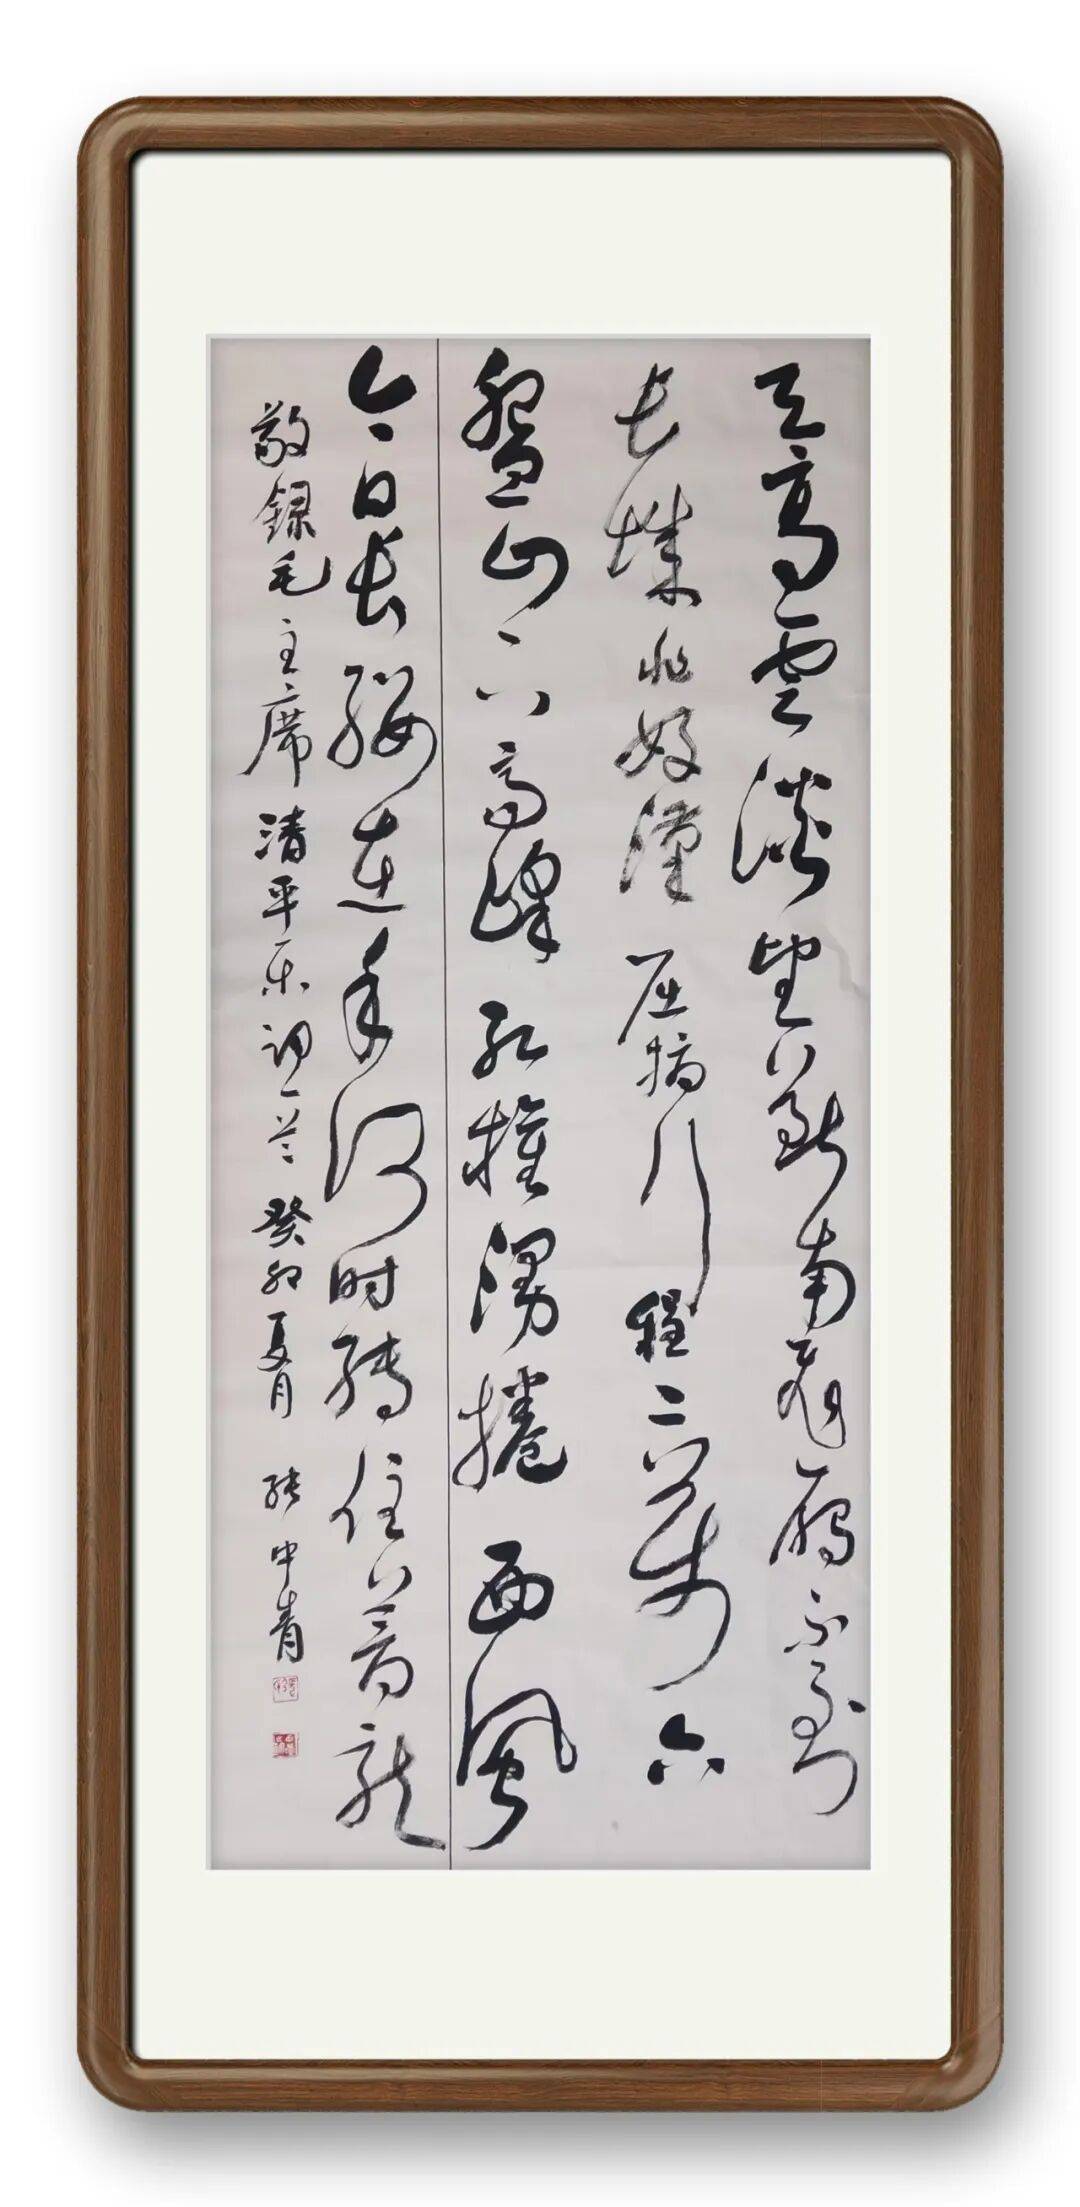 天高雲淡望断南飛雁不到
长城非好漢屈指行程二萬六
盤山上高峰红旗漫捲西風
今日长缨在手何时缚住蒼龍
敬録毛主席清平乐词一首癸卯夏月张中青